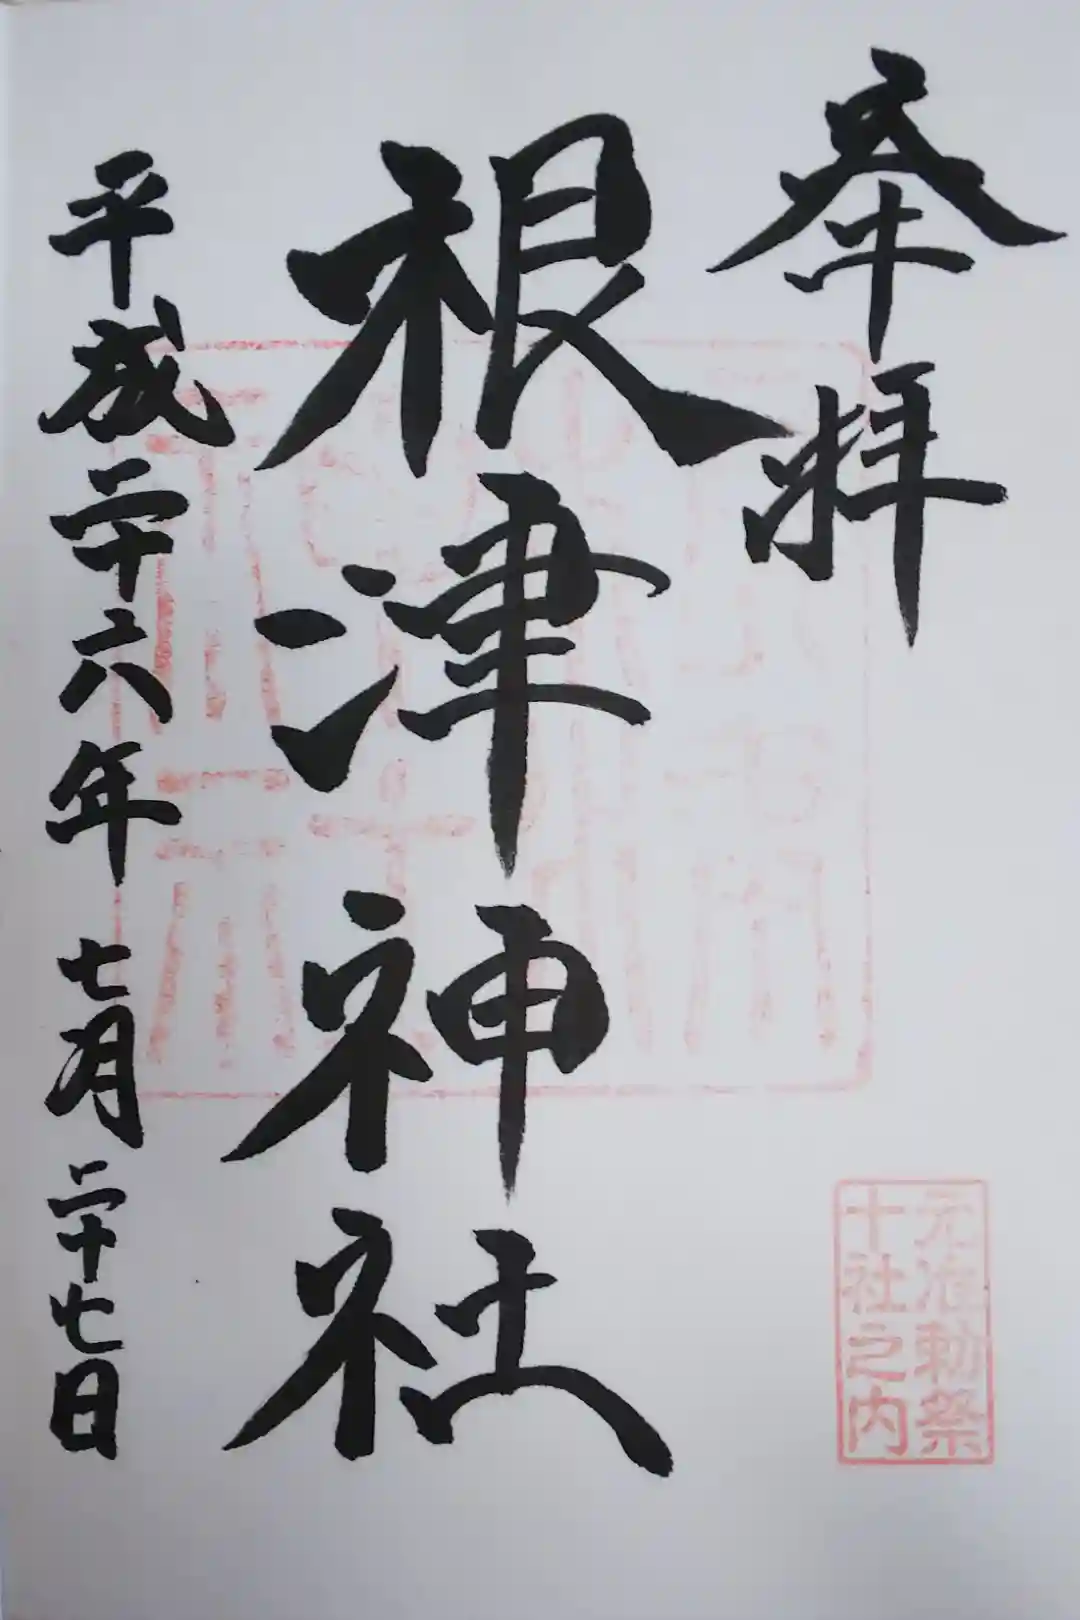 奉拝
根津神社
平成二十六年 七月二十七日
元准勅祭
十社之内